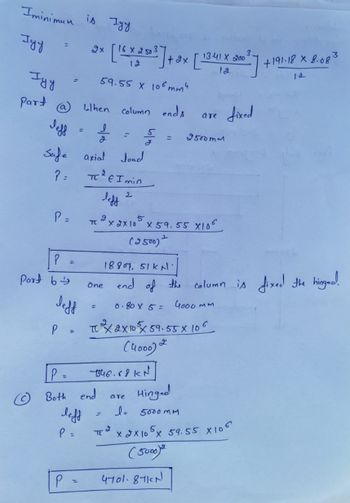 Iminimum is Iyy
Iyy = 2x [16 x 250³ / 12] + 2x [13.41 x 200³ / 12] + 191.18 x 8.08³ / 12
Iyy = 59.55 x 10⁶ mm⁴
part (a) When column ends are fixed
leff = l/2 = 5/2 = 2500mm
Safe axial load
P = π² E I min / leff²
P = π² x 2x10⁵ x 59.55 x10⁶ / (2500)²
P = 18807.51 kN.
Part b → one end of the column is fixed the hinged.
leff = 0.80 x 5 = 4000 mm
P = π² x 2x10⁵ x 59.55 x 10⁶ / (4000)²
P = 46.68 kN
(c) Both end are Hinged
leff = l = 5000 mm
P = π² x 2x10⁵ x 59.55 x10⁶ / (5000)²
P = 4701.87kN